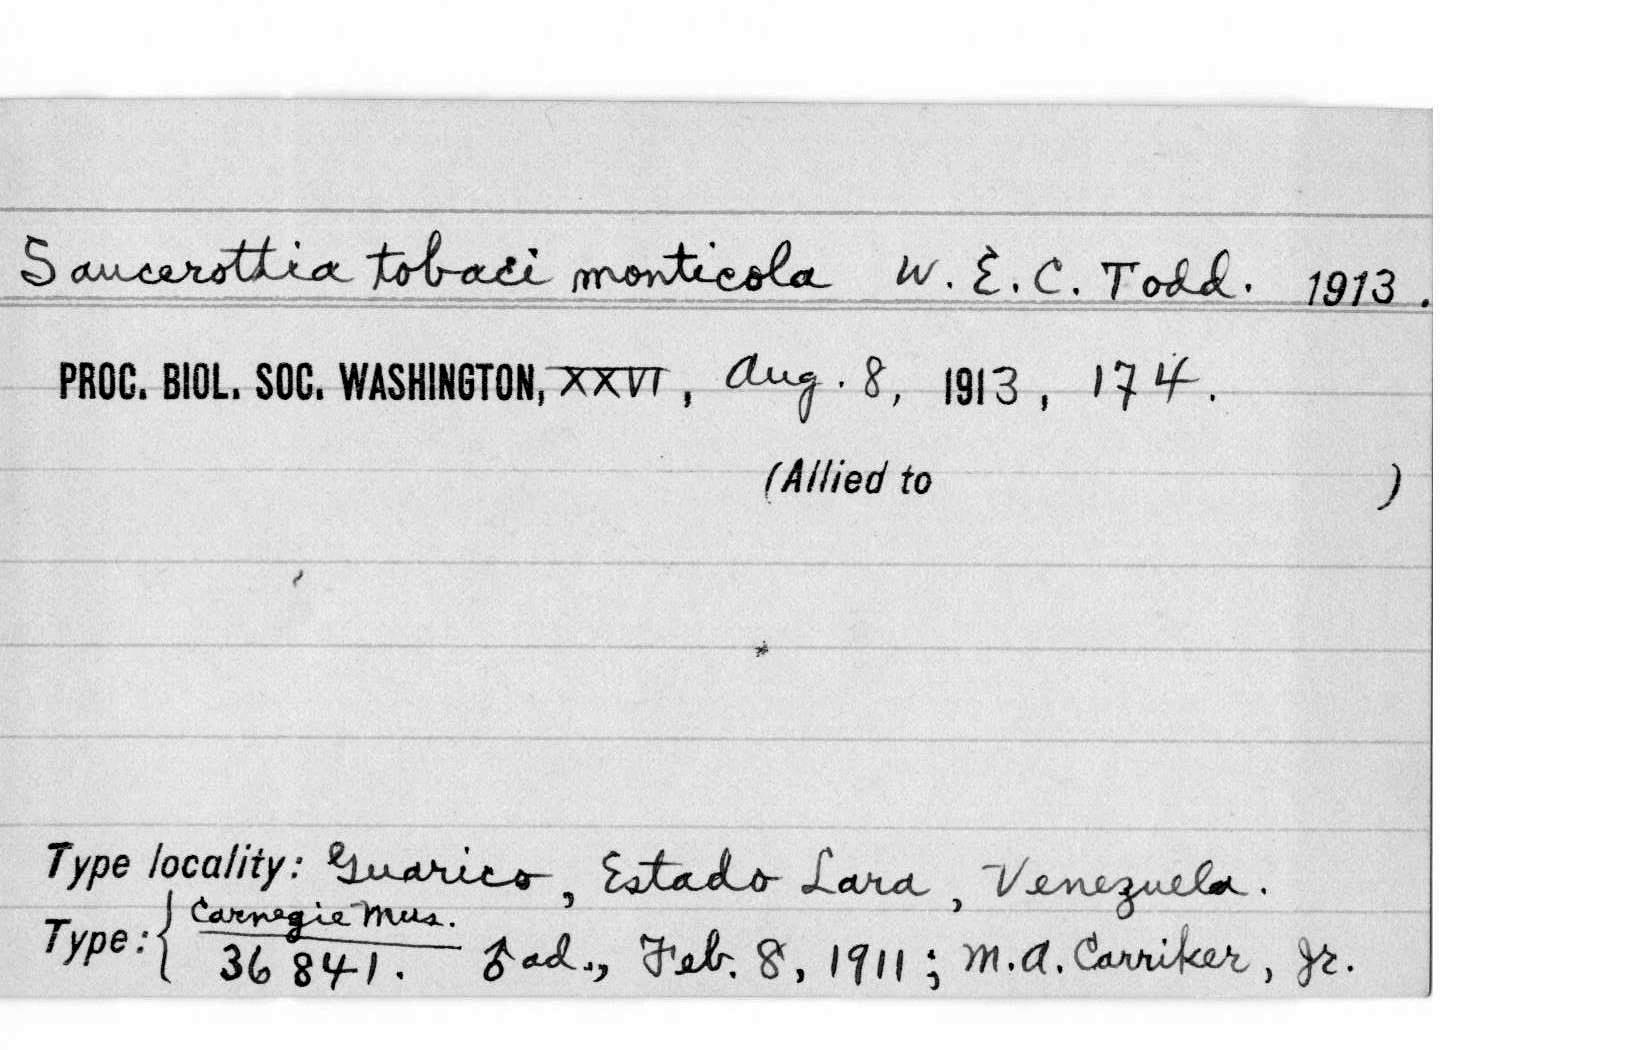 Saucerottia tobaci monticola W. E. C. Todd. 1913.
PROC. BIOL. SOC. WASHINGTON, XXVI, Aug. 8, 1913, 174.
(Allied to )
Type locality: Guarico, Estado Lara, Venezuela.
Type: { Carnegie Mus.
36841. ♂ ad., Feb. 8, 1911; M.A. Carriker, Jr.